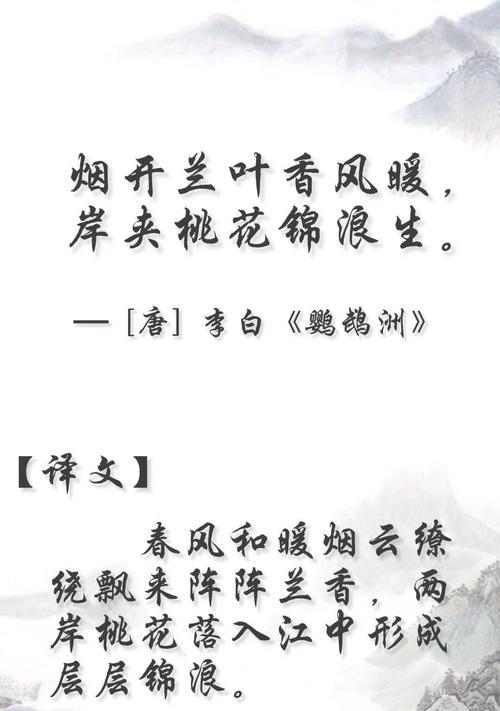 烟开兰叶香风暖，
岸夹桃花锦浪生。
— [唐] 李白《鹦鹉洲》
【译文】
春风和暖烟云缭
绕飘来阵阵兰香，两
岸桃花落入江中形成
层层锦浪。